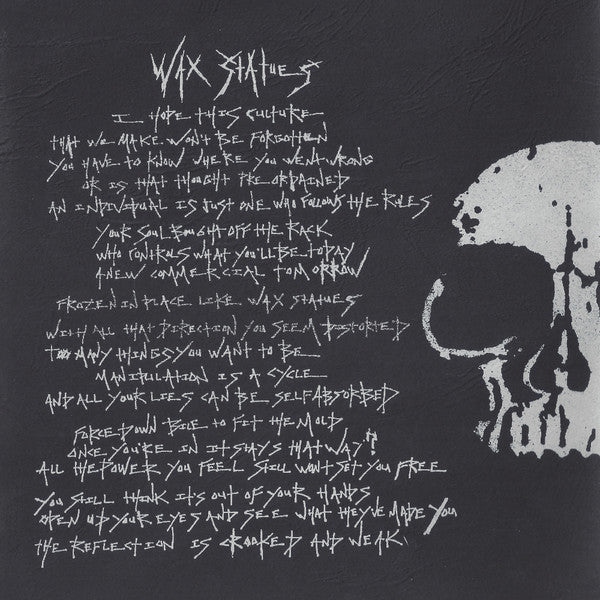 WAX STATUES
I HOPE THIS CULTURE
THAT WE MAKE WON'T BE FORGOTTEN
YOU HAVE TO KNOW WHERE YOU WENT WRONG
OR IS THAT THOUGHT PREORDAINED
AN INDIVIDUAL IS JUST ONE WHO FOLLOWS THE RULES
YOUR SOUL BOUGHT OFF THE RACK
WHO CONTROLS WHAT YOU'LL BE TODAY
A NEW COMMERCIAL TOMORROW
FROZEN IN PLACE LIKE WAX STATUES
WITH ALL THAT DIRECTION YOU SEEM DISTORTED
TOO MANY THINGS YOU WANT TO BE
MANIPULATION IS A CYCLE
AND ALL YOUR LIES CAN BE SELFABSORBED
FORCE DOWN BILE TO FIT THE MOLD
ONCE YOU'RE IN IT STAYS THAT WAY
ALL THE POWER YOU FEEL STILL WON'T SET YOU FREE
YOU STILL THINK IT'S OUT OF YOUR HANDS
OPEN UP YOUR EYES AND SEE WHAT THEY'VE MADE YOU
THE REFLECTION IS CROOKED AND WEAK